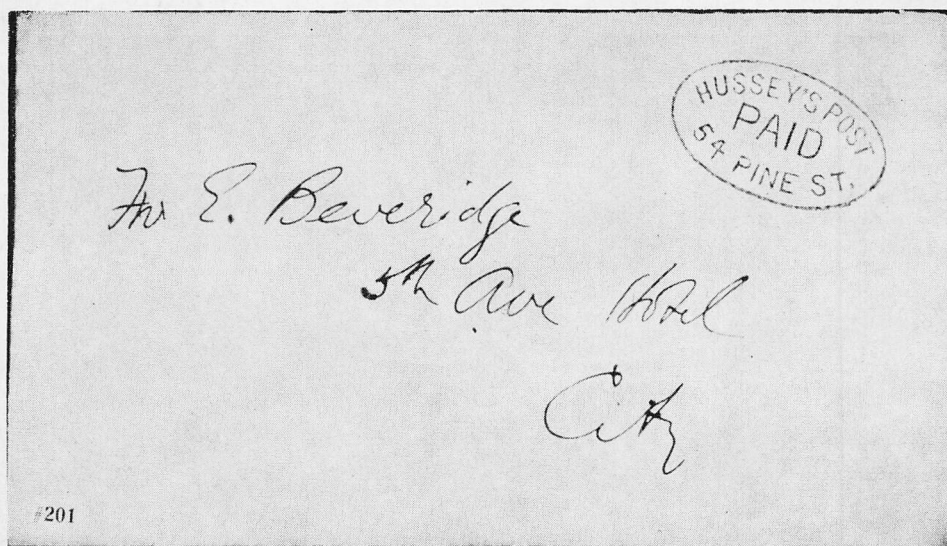 HUSSEY'S POST
PAID
54 PINE ST.
E. Beveridge
5th Ave Hotel
City
#201